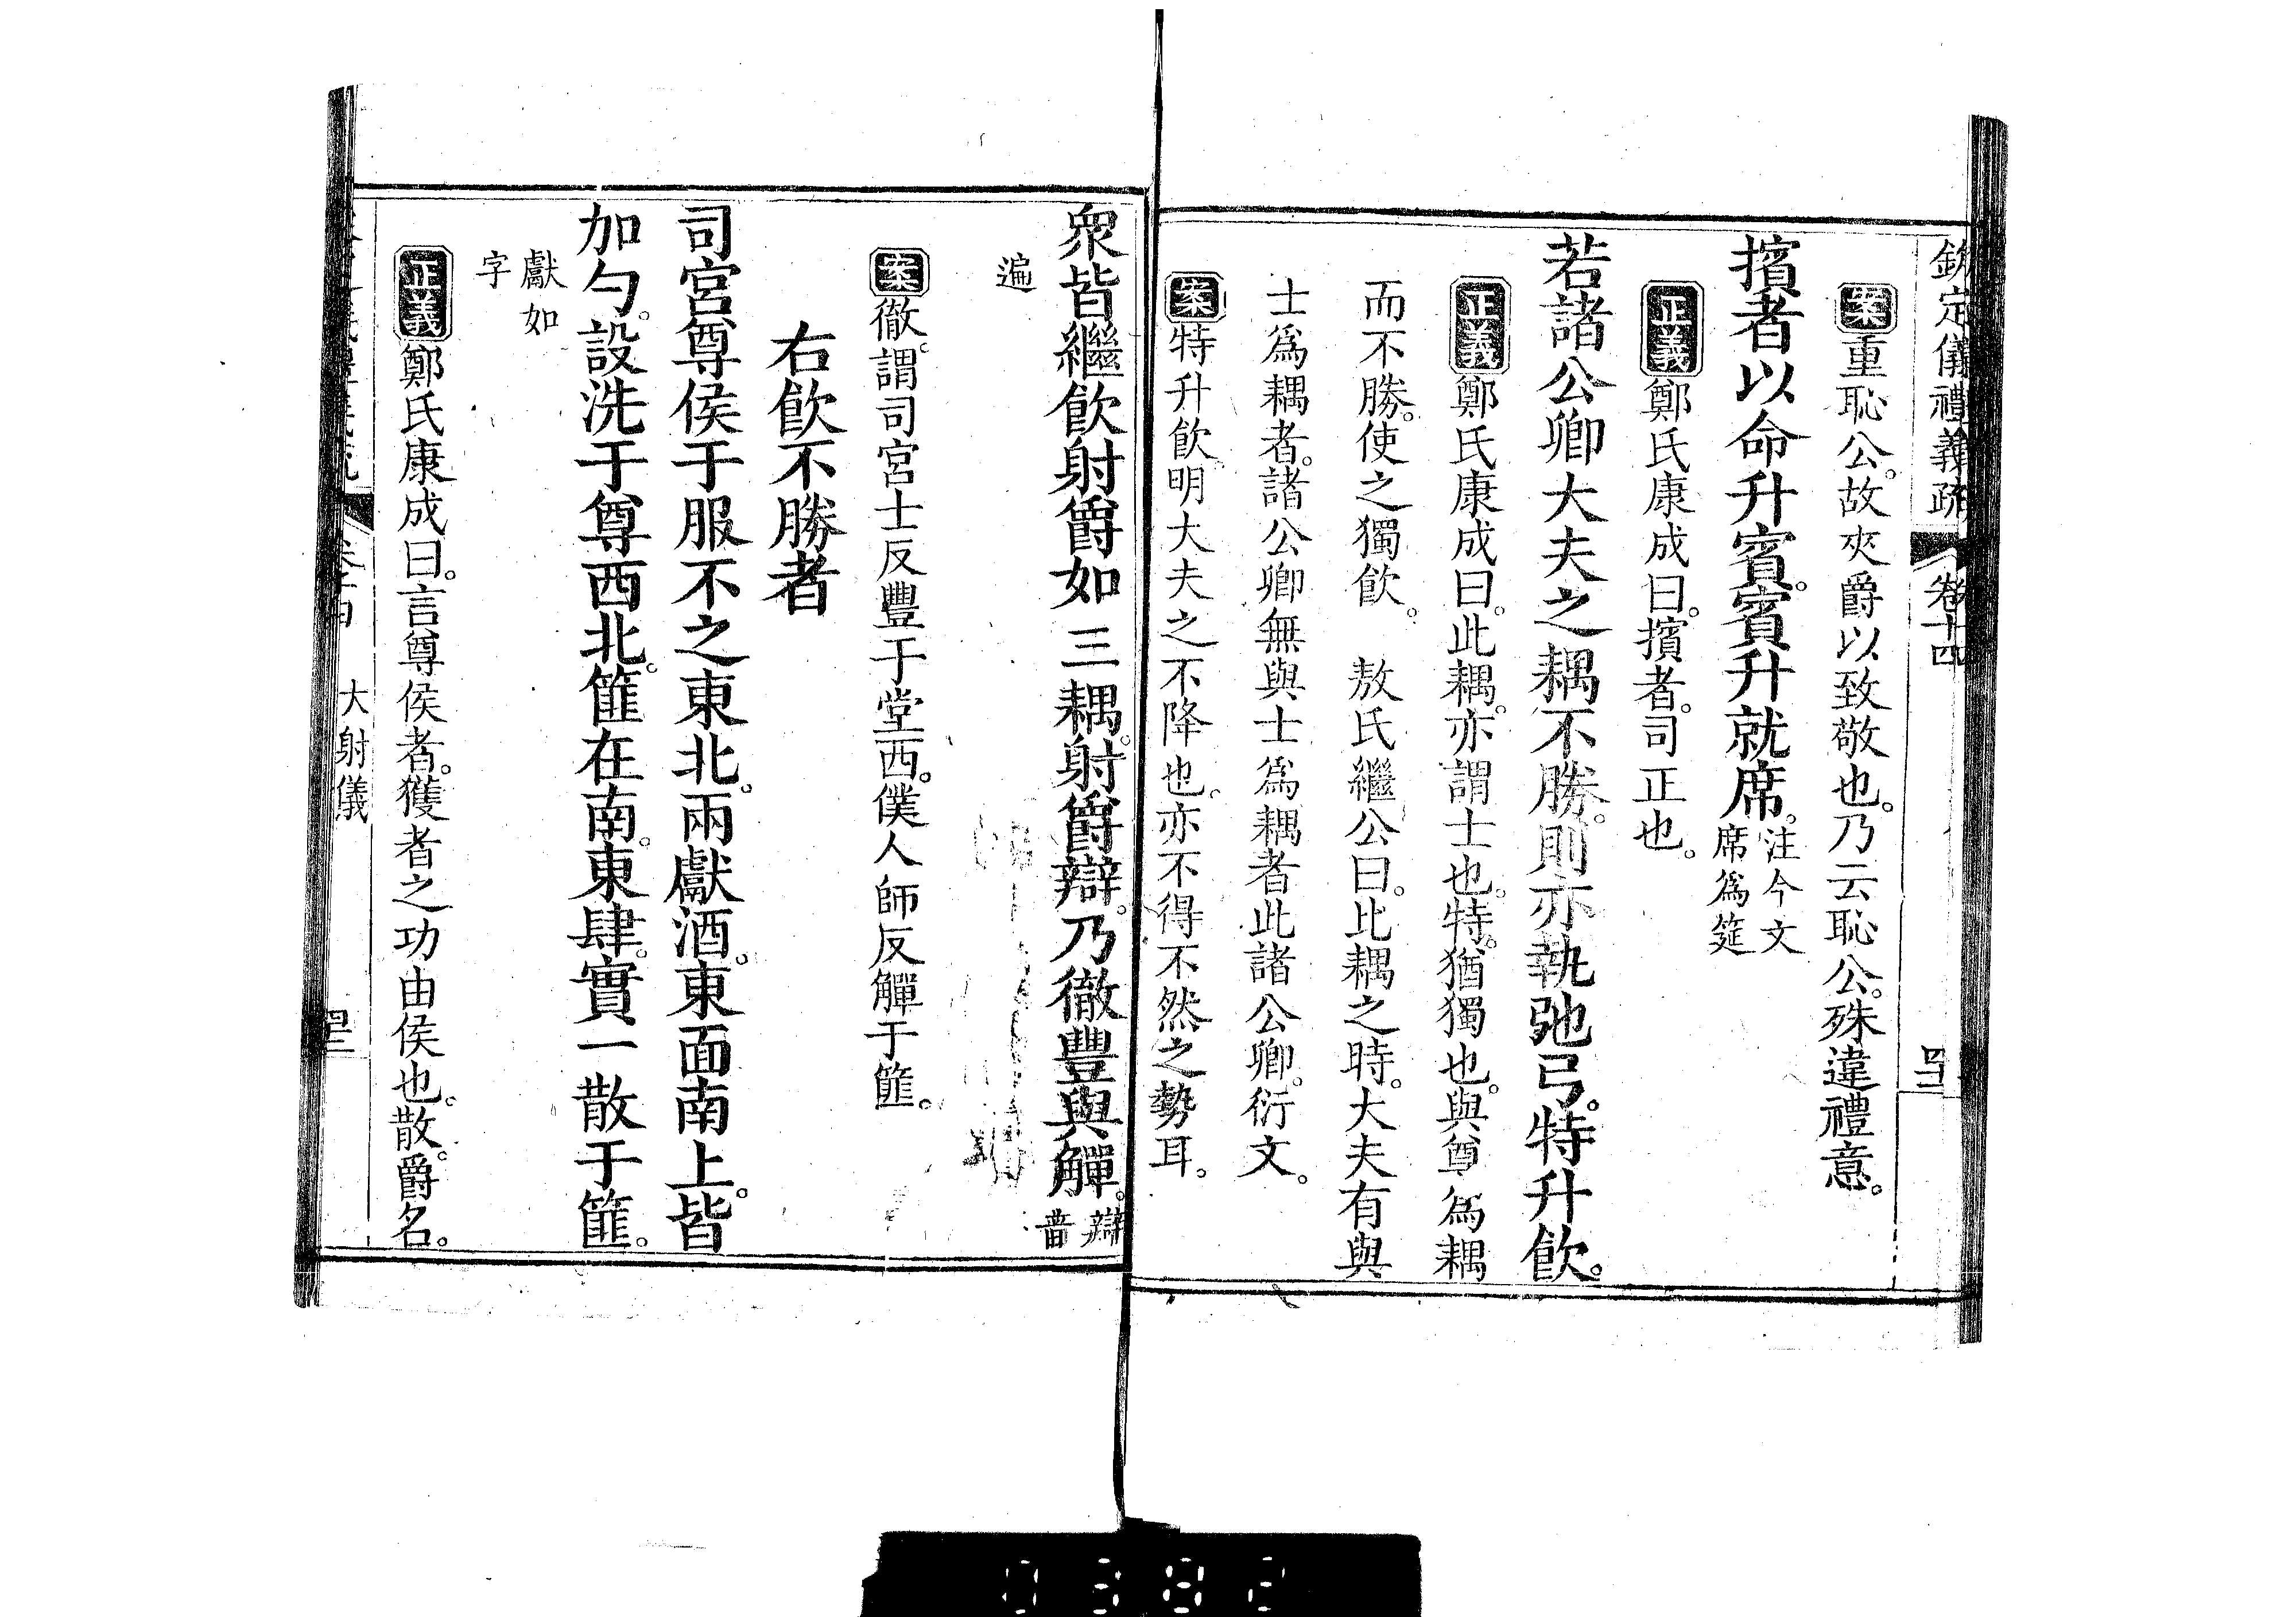 欽定儀禮義疏 卷十四
案重恥公。故夾爵以致敬也。乃云恥公。殊違禮意。
擯者以命升賓。賓升就席。注今文席爲筵
正義鄭氏康成曰。擯者。司正也。
若諸公卿大夫之耦不勝。則亦執弛弓。特升飲。
正義鄭氏康成曰。此耦。亦謂士也。特。猶獨也。與尊爲耦
而不勝。使之獨飲。 敖氏繼公曰。比耦之時。大夫有與
士爲耦者。諸公卿無與士爲耦者此諸公卿。衍文。
案特升飲。明大夫之不降也。亦不得不然之勢耳。
衆皆繼飲射爵如三耦。射爵辯。乃徹豐與觶。辯音
遍
案徹。謂司宮士反豐于堂西。僕人師反觶于篚。
右飲不勝者
司宮尊侯于服不之東北。兩獻酒。東面南上。皆
加勺。設洗于尊西北。篚在南。東肆。實一散于篚。
獻如字
正義鄭氏康成曰。言尊侯者。獲者之功由侯也。散。爵名。
大射儀
0382